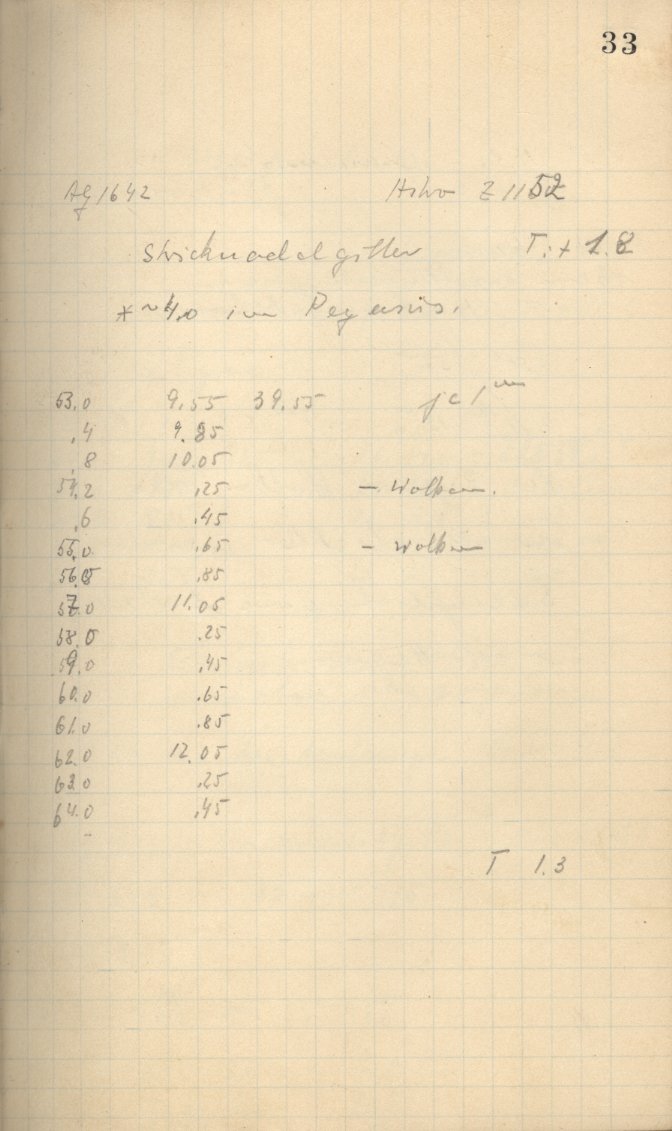 33
AG 1642 Z 1152
Stricknadelgitter T: + 1.8
* ~ 4,0 im Pegasus.
53.0 9.55 39.55 je 1 m
,4 9.85
,8 10.05
54,2 ,25 – Wolken.
,6 ,45
55,0 ,65 – Wolken
56.0 ,85
57.0 11.05
58.0 .25
59.0 ,45
60.0 .65
61.0 .85
62.0 12.05
63.0 ,25
64.0 ,45
T 1.3